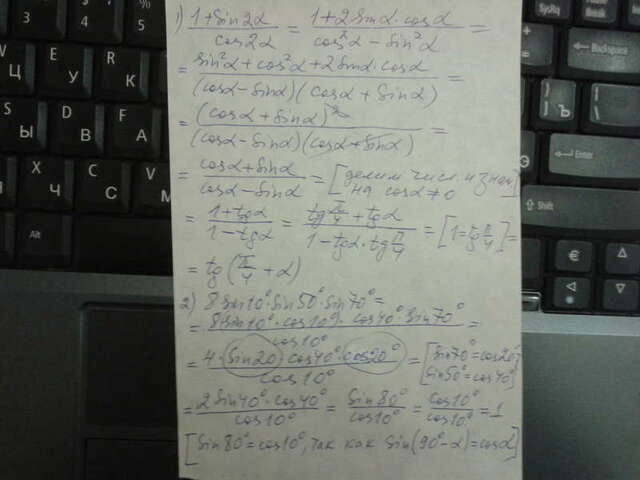 1) (1+sin2α)/(cos2α) = (1+2sinα·cosα)/(cos²α−sin²α) =
= (sin²α+cos²α+2sinα·cosα)/((cosα−sinα)(cosα+sinα)) =
= (cosα+sinα)²/((cosα−sinα)(cosα+sinα)) =
= (cosα+sinα)/(cosα−sinα) = [делим числ. и знам. на cosα≠0]
= (1+tgα)/(1−tgα) = (tg π/4+tgα)/(1−tgα·tg π/4) = [1=tg π/4] =
= tg(π/4+α)
2) 8·sin10°·sin50°·sin70° =
= (8·sin10°·cos10°·cos40°·sin70°)/(cos10°) =
= (4·(sin20°)cos40°·cos20°)/(cos10°) = [sin70°=cos20° sin50°=cos40°]
= (2sin40°·cos40°)/(cos10°) = (sin80°)/(cos10°) = (cos10°)/(cos10°) = 1
[sin80°=cos10°, так как sin(90°−α)=cosα]
Shift
Backspace
Enter
Alt
SysRq
Ins
Del
3
4
%
5
Ц
У
К
Е
Ы
В
А
Ч
С
М
Ъ
€